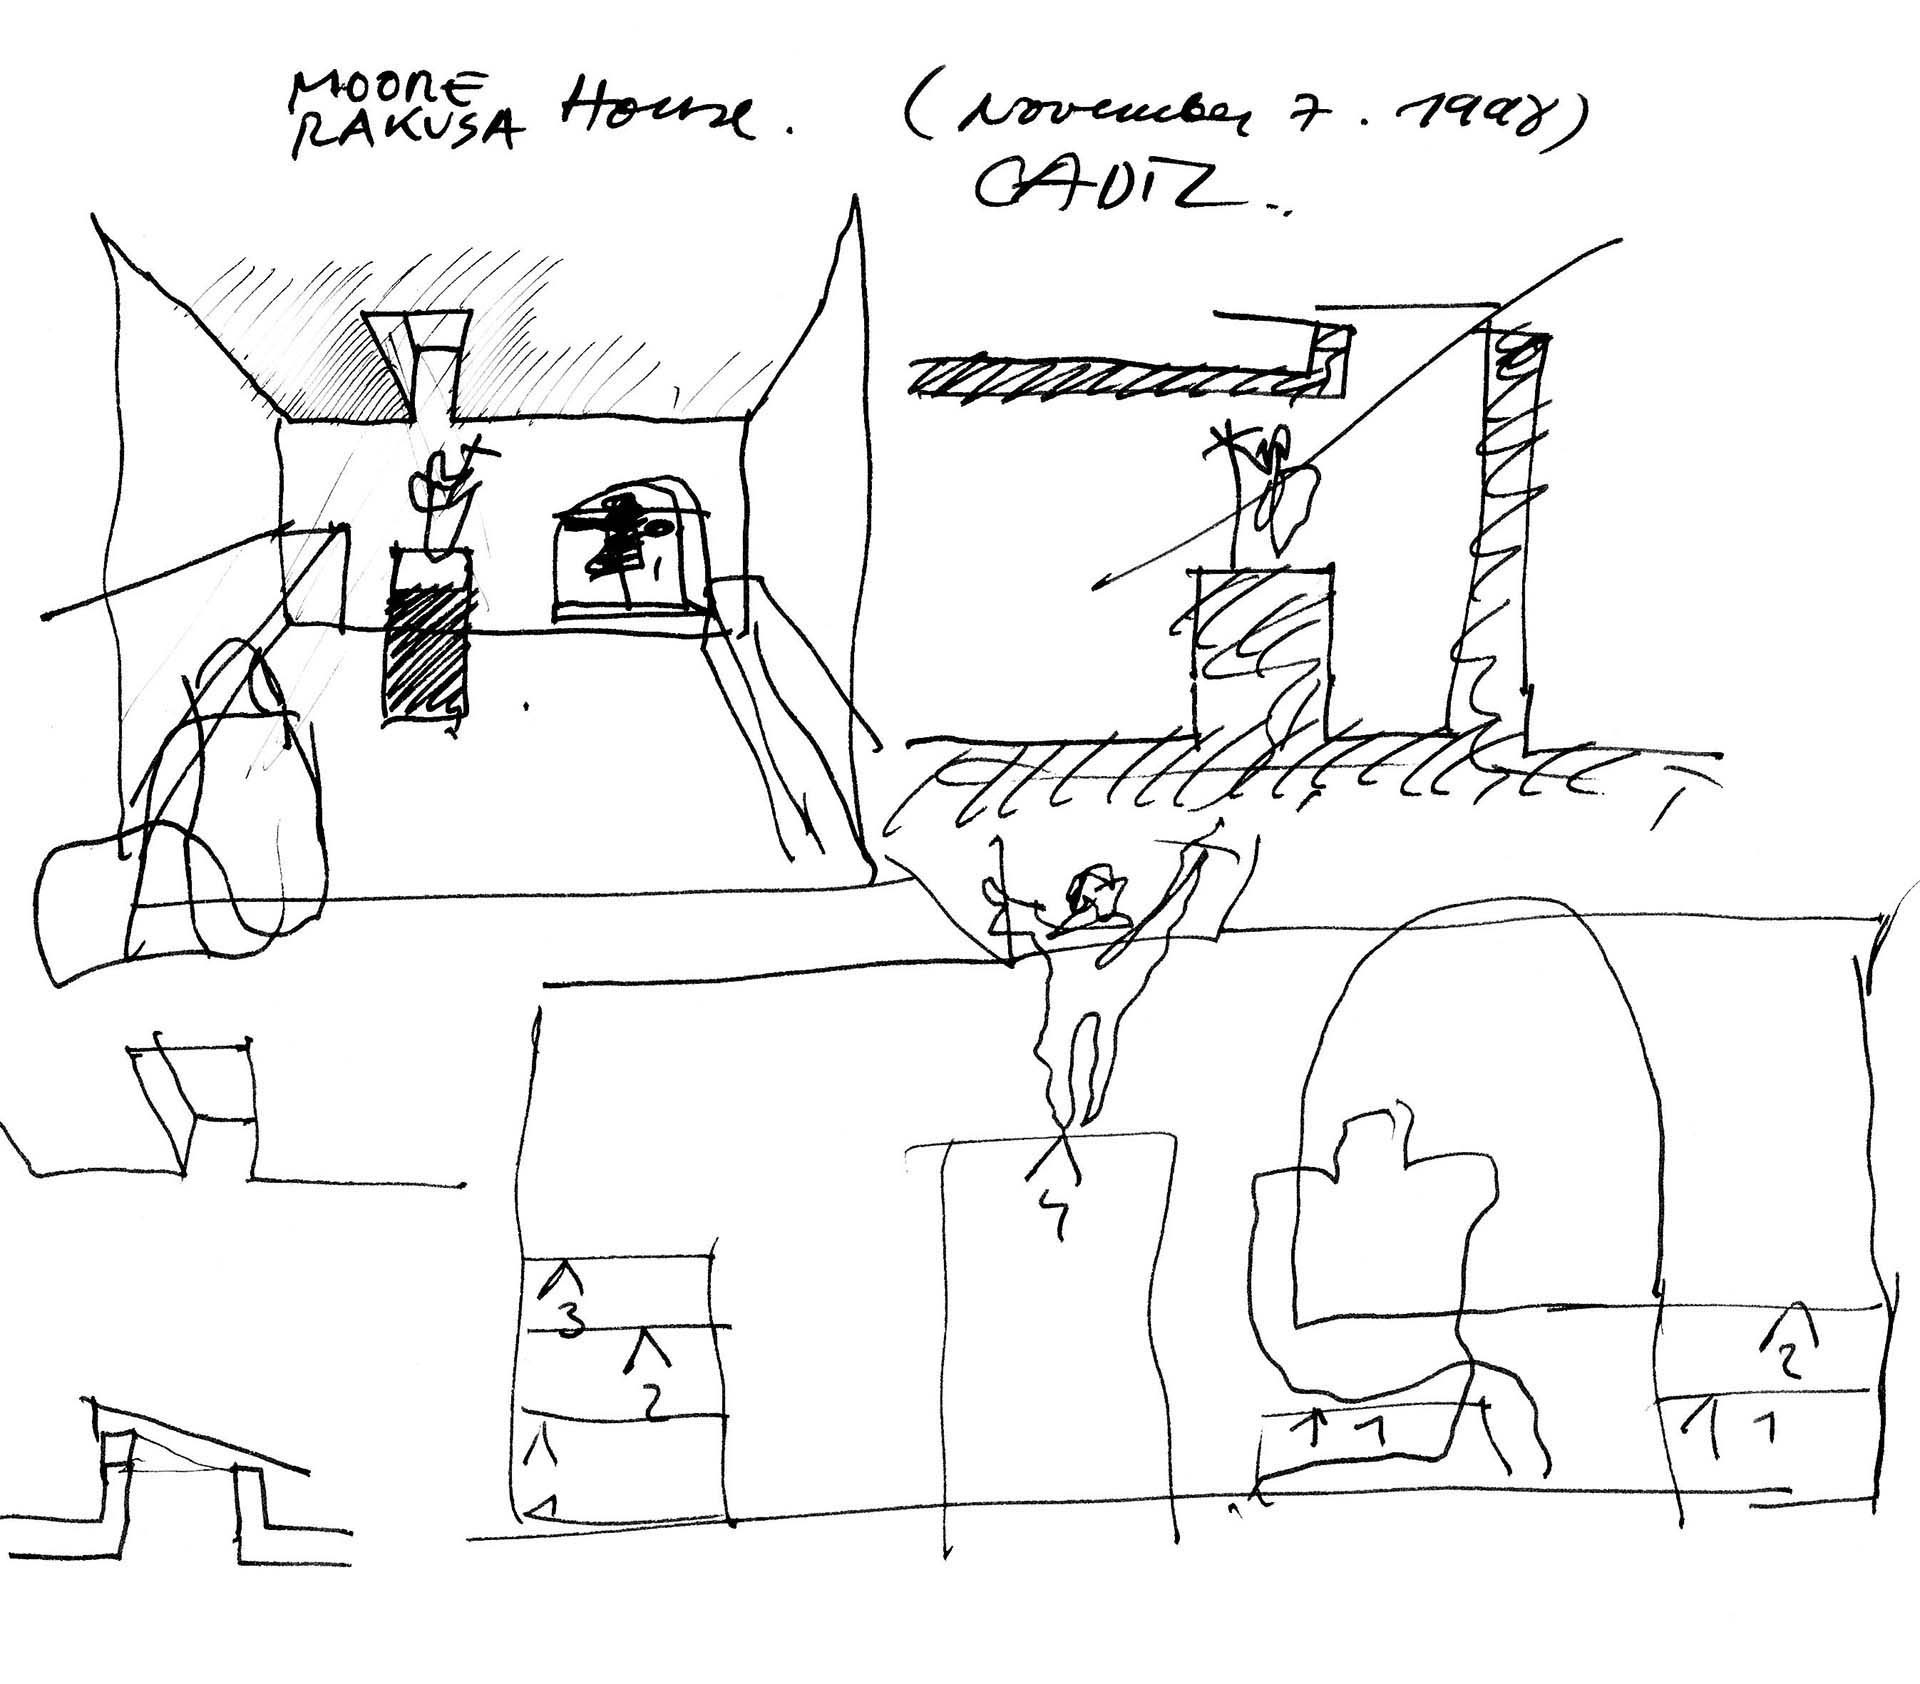 MOORE
RAKUSA House. (November 7. 1998)
CADIZ..
4
3
2
2
1 1
1
1